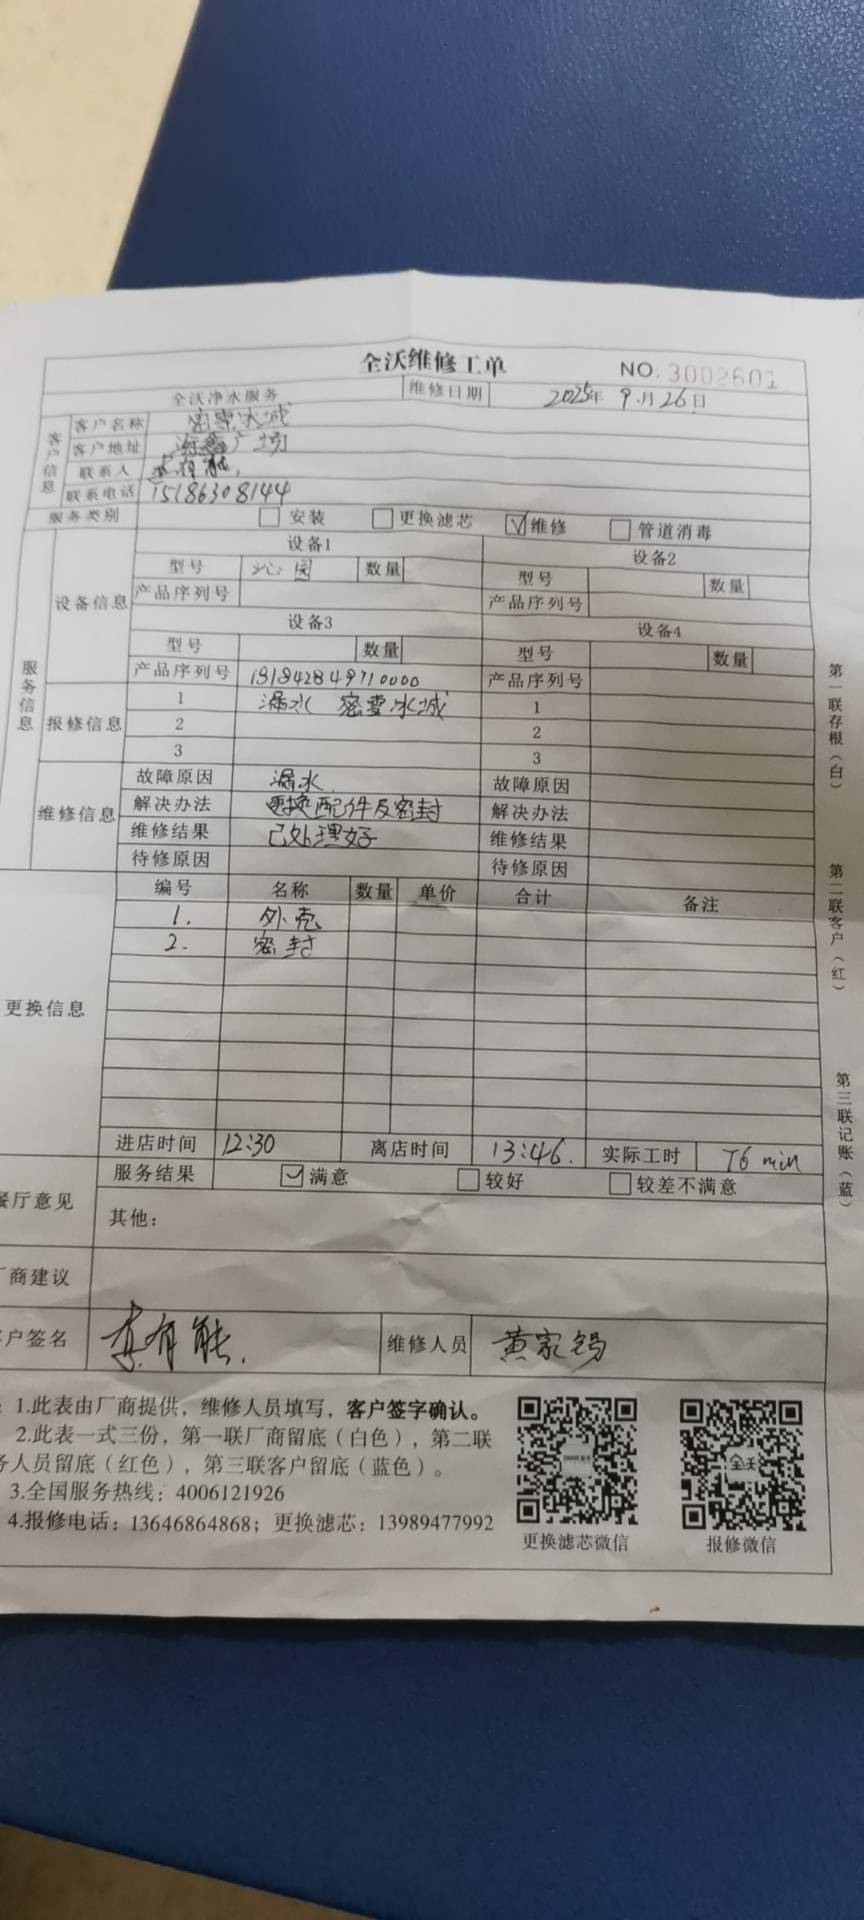 全沃维修工单
NO.3002601
全沃净水服务 维修日期 2025年9月26日
客户信息
客户名称 密雪冰城
客户地址 海鑫广场
联系人 李有能
联系电话 15186308144
服务类别 安装 更换滤芯 ☑维修 管道消毒
服务信息
设备信息
设备1 设备2
型号 沁园 数量 型号 数量
产品序列号 产品序列号
设备3 设备4
型号 数量 型号 数量
产品序列号 191842849710000 产品序列号
报修信息
1 漏水 密雪冰城 1
2 2
3 3
维修信息
故障原因 漏水 故障原因
解决办法 更换配件及密封 解决办法
维修结果 已处理好 维修结果
待修原因 待修原因
更换信息
编号 名称 数量 单价 合计 备注
1. 外壳
2. 密封
进店时间 12:30 离店时间 13:46. 实际工时 76 min
餐厅意见
服务结果 ☑满意 较好 较差不满意
其他：
厂商建议
客户签名 李有能. 维修人员 黄家锡
：1.此表由厂商提供，维修人员填写，客户签字确认。
2.此表一式三份，第一联厂商留底（白色），第二联
务人员留底（红色），第三联客户留底（蓝色）。
3.全国服务热线：4006121926
4.报修电话：13646864868；更换滤芯：13989477992
更换滤芯微信 报修微信
全沃
第一联存根（白）
第二联客户（红）
第三联记账（蓝）